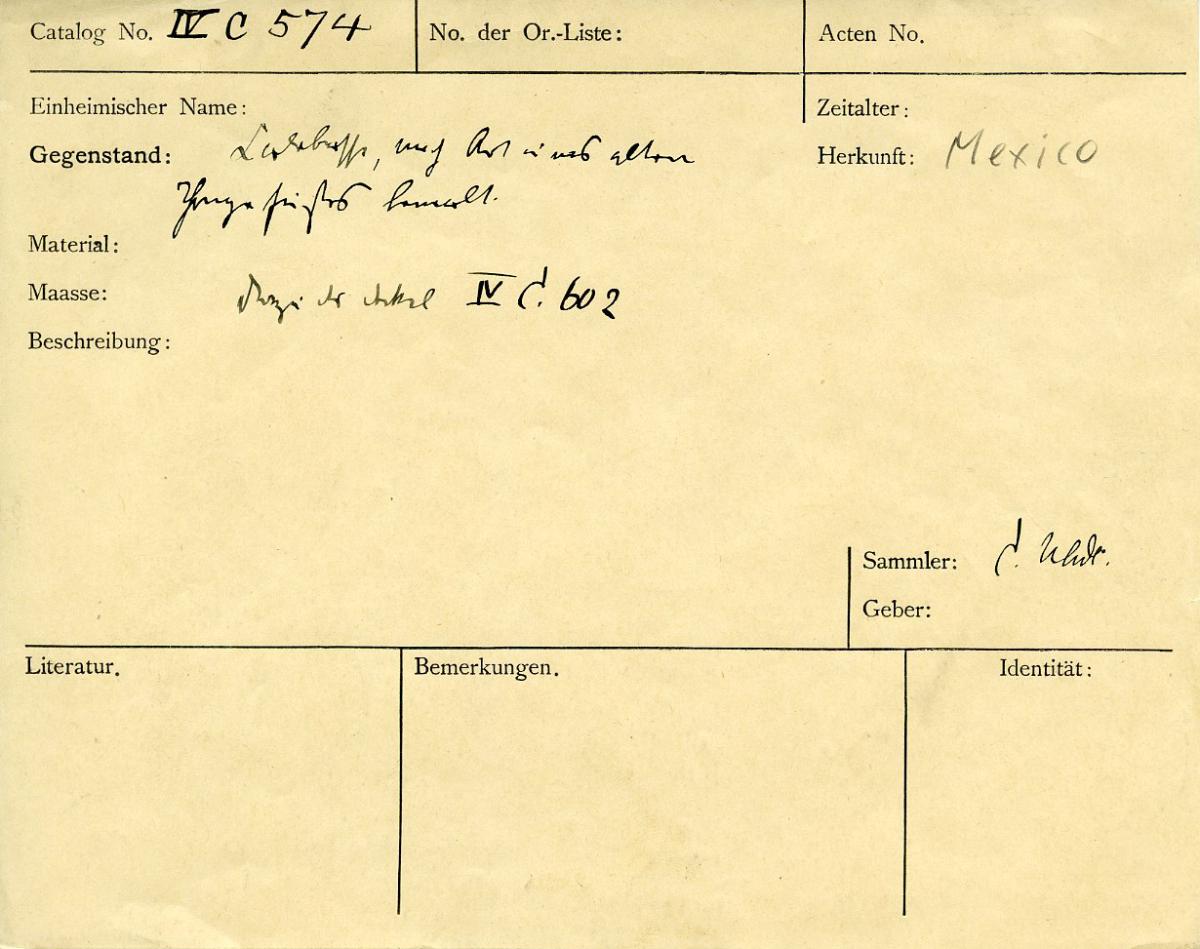 Catalog No. IV C 574
No. der Or.-Liste:
Acten No.
Einheimischer Name:
Zeitalter:
Gegenstand: Kalebasse, nach Art eines alten
Thongefäßes bemalt.
Herkunft: Mexico
Material:
Maasse: Dazu der Deckel IV C. 602
Beschreibung:
Sammler: C. Uhde.
Geber:
Literatur.
Bemerkungen.
Identität: